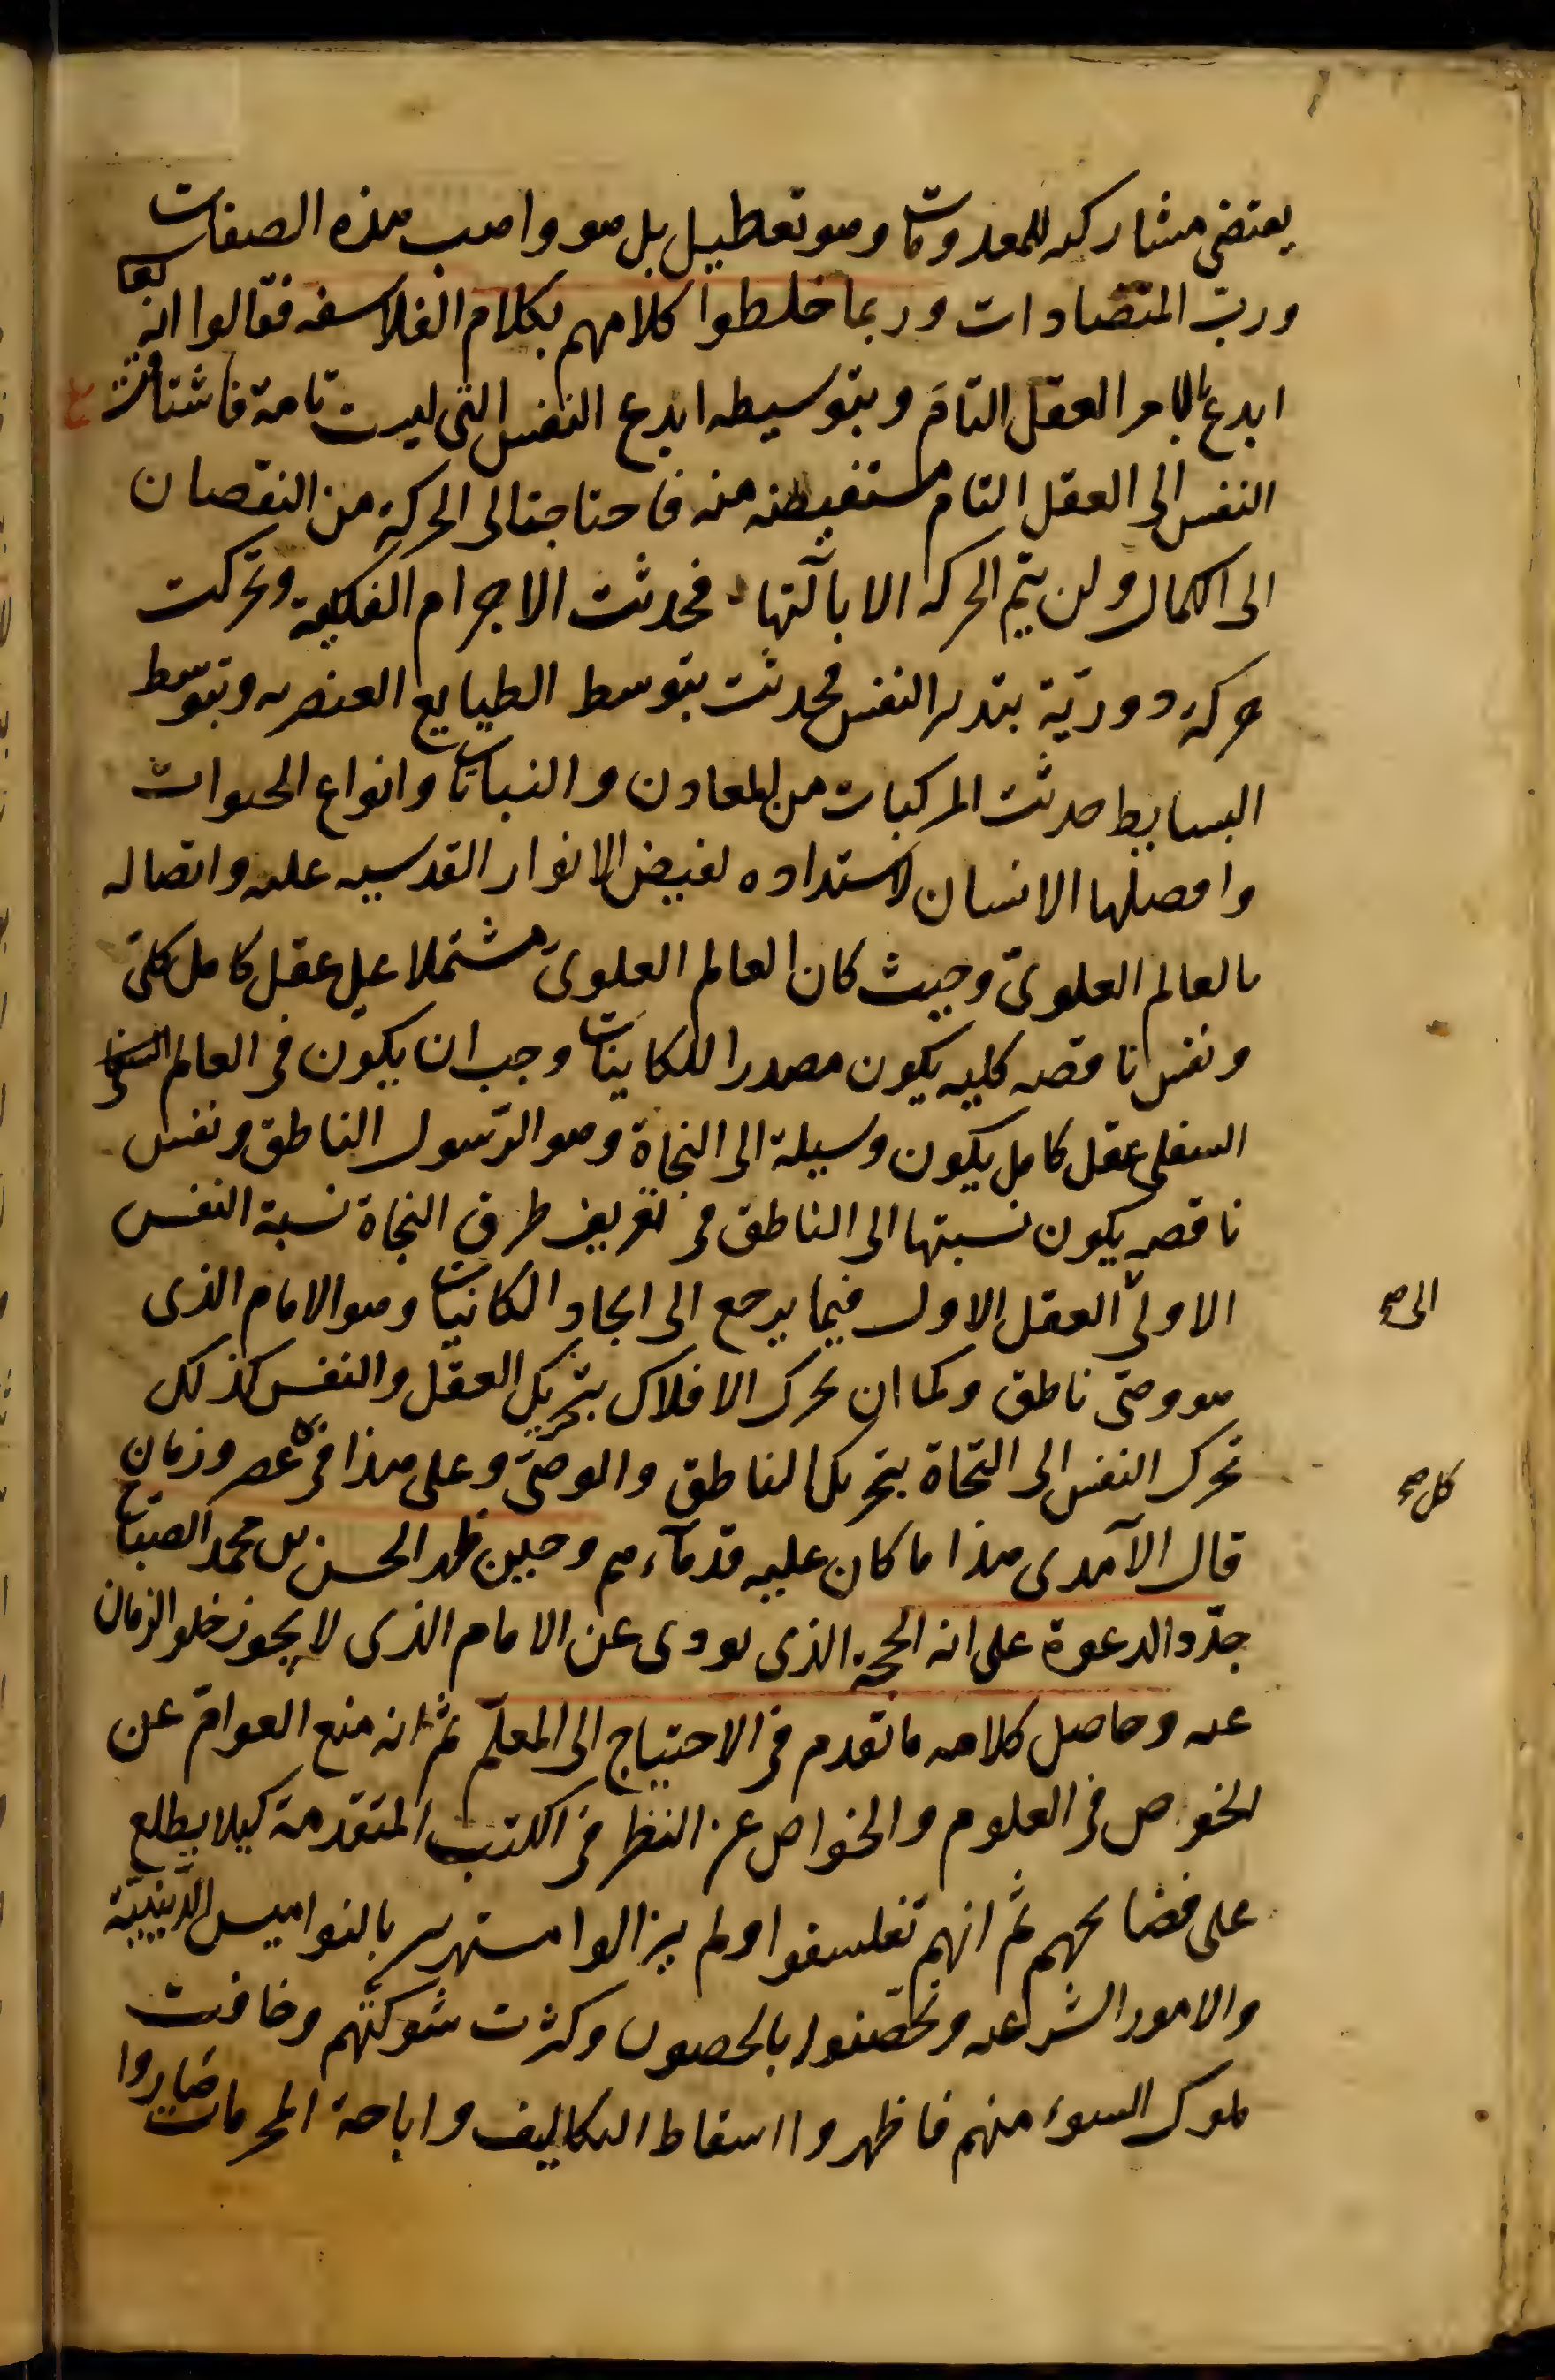 يقتضى مشاركه للمعدومات وهو تعطيل بل هو واهب هذه الصفات
ورب المتضادات وربما خلطوا كلامهم بكلام الفلاسفه فقالوا انه تعا
ابدع بالامر العقل التام وبتوسيطه ابدع النفس التى ليست تامة فاشتاقت
النفس الى العقل التام مستفيضه منه فاحتاجت الى الحركة من النقصان
الى الكمال ولن يتم الحركه الا بآلتها فحدثت الاجرام الفلكية وتحركت
حركة دورية بتدبر النفس فحدثت بتوسط الطبايع العنصريه وبتوسط
البسايط حدثت المركبات من المعادن والنباتات وانواع الحيوات
وافضلها الانسان لاستداده لفيض الانوار القدسيه عليه واتصاله
بالعالم العلوى وحيث كان العالم العلوى مشتملا على عقل كامل كلى
ونفس ناقصه كليه يكون مصدرا للكاينات وجب ان يكون فى العالم
السفلى عقل كامل يكون وسيلة الى النجاة وهو الرسول الناطق ونفس
ناقصه يكون نسبتها الى الناطق فى تعريف طرق النجاة نسبة النفس
الاولى العقل الاول فيما يرجع الى ايجاد الكاينات وهو الامام الذى
الى صح
هو وصى ناطق وكما ان تحرك الافلاك بتحريك العقل والنفس كذلك
تحرك النفس الى النجاة بتحريك الناطق والوصى وعلى هذا فى عصر وزمان
كل صح
قال الآمدى هذا ما كان عليه قدمآءهم وحين ظهر الحسن بن محمد الصباح
جدد الدعوة على انه الحجة الذى يودى عن الامام الذى لا يجوز خلو الزمان
عنه وحاصل كلامه ما تقدم فى الاحتياج الى المعلم ثم انه منع العوام عن
الخوض فى العلوم والخواص عن النظر فى الكتب المتقدمة كيلا يطلع
على فضائحهم ثم انهم تفلسفوا ولم يزالوا مستهزين بالنواميس الدينية
والامور الشرعيه وتحصنوا بالحصون وكثرت شوكتهم وخافت
ملوك السوء منهم فاظهروا اسقاط التكاليف واباحة المحرمات فصاروا